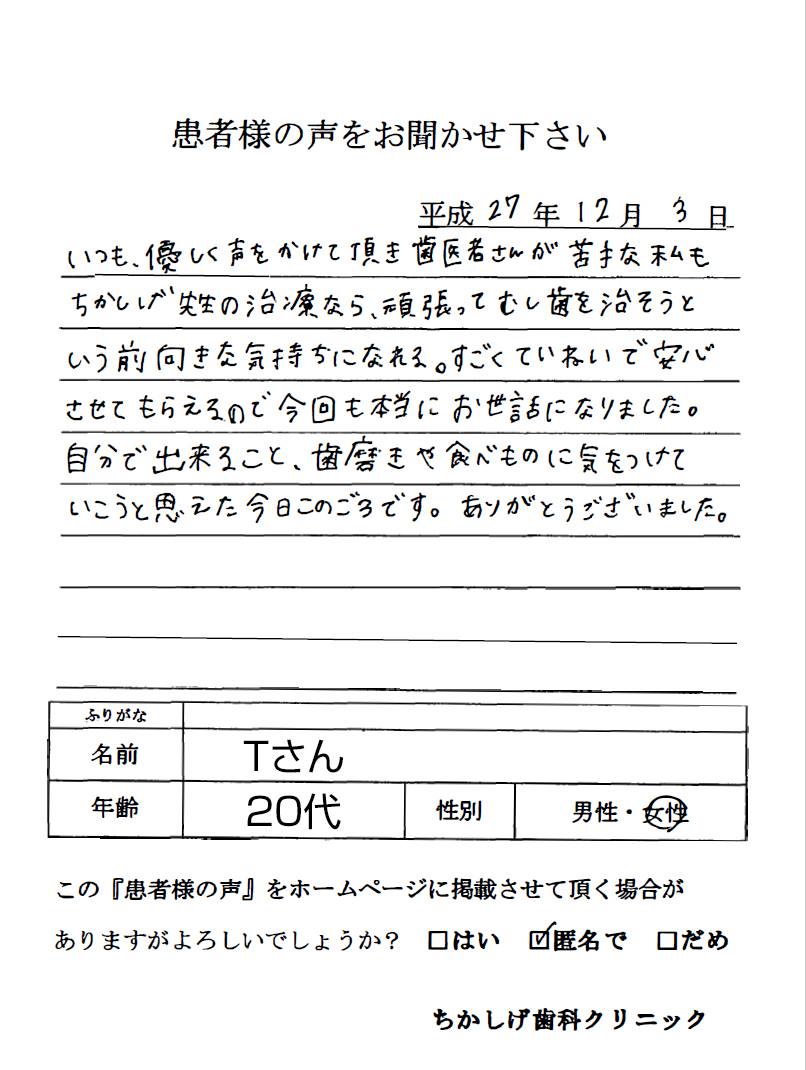 患者様の声をお聞かせ下さい
平成 27 年 12 月 3 日
いつも、優しく声をかけて頂き歯医者さんが苦手な私も
ちかしげ先生の治療なら、頑張ってむし歯を治そうと
いう前向きな気持ちになれる。すごくていねいで安心
させてもらえるので今回も本当にお世話になりました。
自分で出来ること、歯磨きや食べものに気をつけて
いこうと思えた今日このごろです。ありがとうございました。
ふりがな
名前 Tさん
年齢 20代 性別 男性・女性
この『患者様の声』をホームページに掲載させて頂く場合が
ありますがよろしいでしょうか？ □はい ☑匿名で □だめ
ちかしげ歯科クリニック